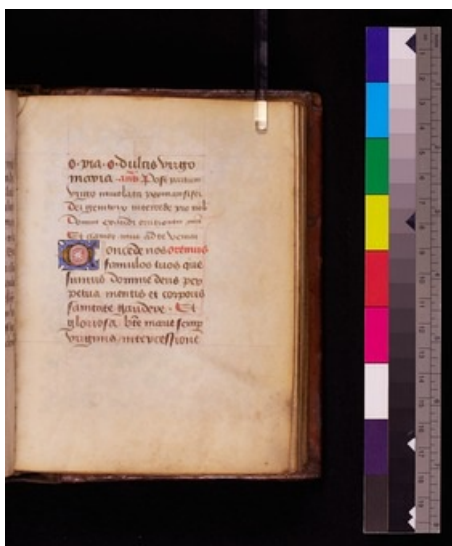 o pia o dulcis virgo
maria an Post partum
virgo inviolata permansisti
dei genitrix intercede pro nob
Domine exaudi orationem
Et clamor meus ad te veniat
Concede nos oremus
famulos tuos que
sumus domine deus per
petua mentis et corporis
sanitate gaudere Et
gloriosa bte marie semp
virginis intercessione